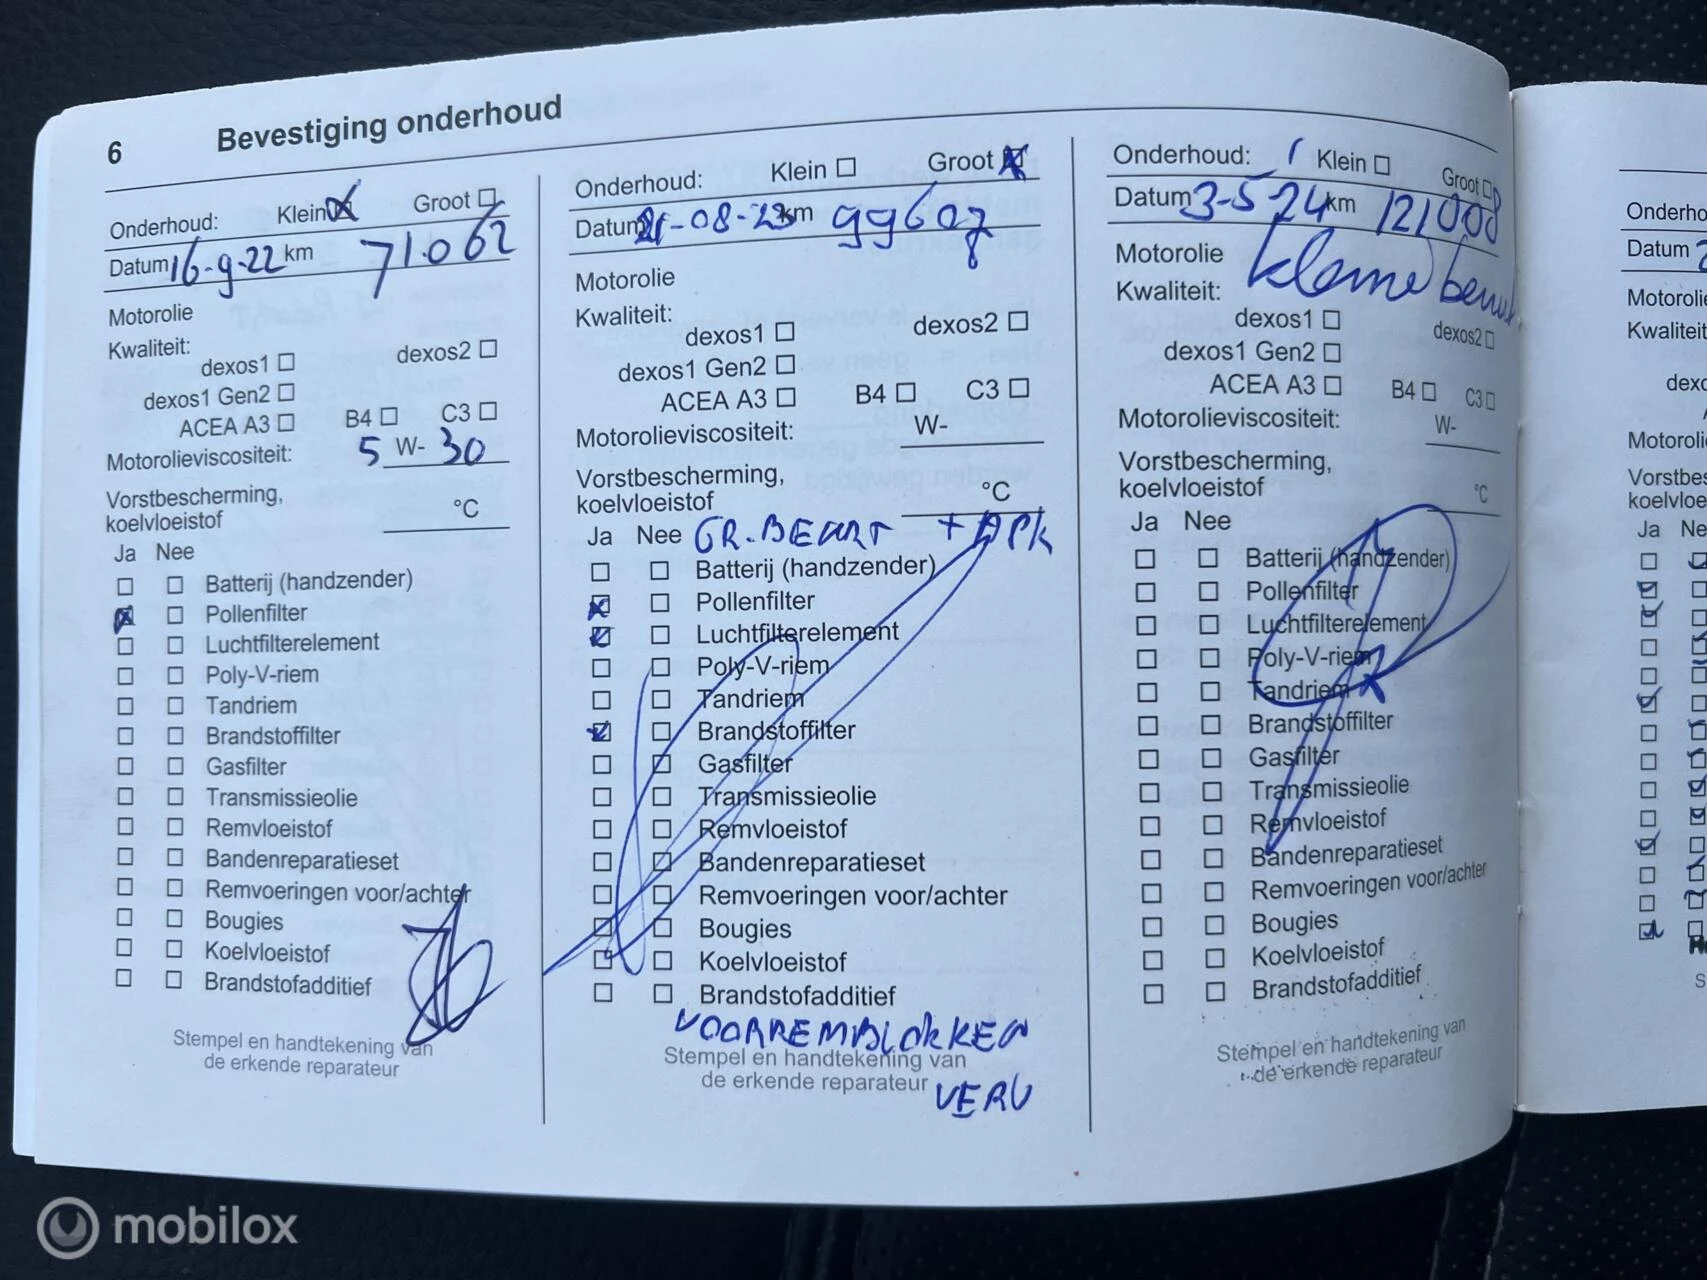 6 Bevestiging onderhoud
Onderhoud: Klein Groot
Datum 16-9-22 km 71.062
Motorolie
Kwaliteit:
dexos1 dexos2
dexos1 Gen2
ACEA A3 B4 C3
Motorolieviscositeit: 5 W- 30
Vorstbescherming,
koelvloeistof °C
Ja Nee
Batterij (handzender)
Pollenfilter
Luchtfilterelement
Poly-V-riem
Tandriem
Brandstoffilter
Gasfilter
Transmissieolie
Remvloeistof
Bandenreparatieset
Remvoeringen voor/achter
Bougies
Koelvloeistof
Brandstofadditief
Stempel en handtekening van
de erkende reparateur
Onderhoud: Klein Groot
Datum 21-08-23 km 99607
Motorolie
Kwaliteit:
dexos1 dexos2
dexos1 Gen2
ACEA A3 B4 C3
Motorolieviscositeit: W-
Vorstbescherming,
koelvloeistof °C
Ja Nee GR. BEURT + APK
Batterij (handzender)
Pollenfilter
Luchtfilterelement
Poly-V-riem
Tandriem
Brandstoffilter
Gasfilter
Transmissieolie
Remvloeistof
Bandenreparatieset
Remvoeringen voor/achter
Bougies
Koelvloeistof
Brandstofadditief
VOORREMBLOKKEN
Stempel en handtekening van
de erkende reparateur
VERV
Onderhoud: Klein Groot
Datum 3-5-24 km 121008
Motorolie
Kwaliteit: kleine beurt
dexos1 dexos2
dexos1 Gen2
ACEA A3 B4 C3
Motorolieviscositeit: W-
Vorstbescherming,
koelvloeistof °C
Ja Nee
Batterij (handzender)
Pollenfilter
Luchtfilterelement
Poly-V-riem
Tandriem
Brandstoffilter
Gasfilter
Transmissieolie
Remvloeistof
Bandenreparatieset
Remvoeringen voor/achter
Bougies
Koelvloeistof
Brandstofadditief
Stempel en handtekening van
de erkende reparateur
Onderho
Datum 2
Motorolie
Kwaliteit
dexo
Motoroli
Vorstbes
koelvloe
Ja Ne
mobilox